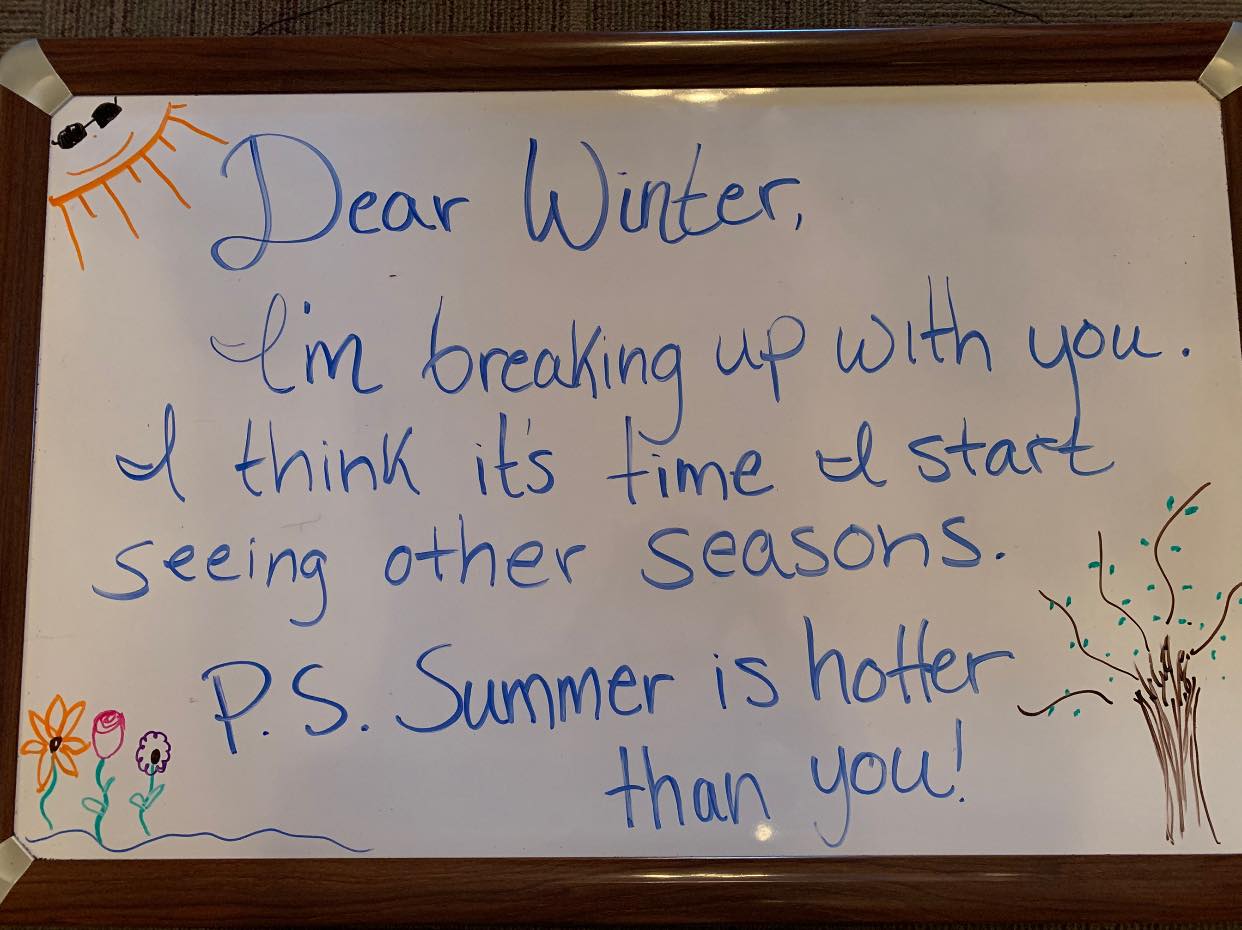 Dear Winter,
I'm breaking up with you.
I think it's time I start
seeing other seasons.
P.S. Summer is hotter
than you!